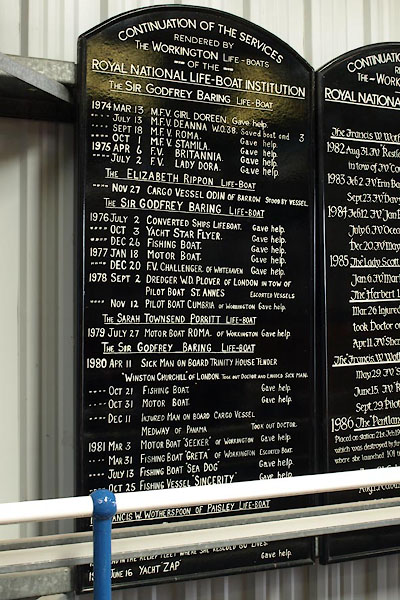 CONTINUATION OF THE SERVICES
RENDERED BY
THE WORKINGTON LIFE-BOATS
OF THE
ROYAL NATIONAL LIFE-BOAT INSTITUTION
THE SIR GODFREY BARING LIFE-BOAT
1974 MAR 13 M.F.V. GIRL DOREEN. Gave help.
JULY 13 M.F.V. DEANNA W.O.38. Saved boat and 3
SEPT 18 M.F.V. ROMA. Gave help.
OCT 1 M.F.V. STAMILA. Gave help.
1975 APR 6 F.V. BRITANNIA Gave help.
JULY 2 F.V. LADY DORA. Gave help.
THE ELIZABETH RIPPON LIFE-BOAT
NOV 27 CARGO VESSEL ODIN OF BARROW STOOD BY VESSEL
THE SIR GODFREY BARING LIFE-BOAT
1976 JULY 2 CONVERTED SHIPS LIFEBOAT. Gave help.
OCT 3 YACHT STAR FLYER. Gave help.
DEC 26 FISHING BOAT. Gave help.
1977 JAN 18 MOTOR BOAT. Gave help.
DEC 20 F.V. CHALLENGER. OF WHITEHAVEN Gave help.
1978 SEPT 2 DREDGER W.D. PLOVER OF LONDON IN TOW OF
PILOT BOAT ST ANNES ESCORTED VESSELS
NOV 12 PILOT BOAT CUMBRIA OF WORKINGTON Gave help.
THE SARAH TOWNSEND PORRITT LIFE-BOAT
1979 JULY 27 MOTOR BOAT ROMA. OF WORKINGTON Gave help.
THE SIR GODFREY BARING LIFE-BOAT
1980 APR 11 SICK MAN ON BOARD TRINITY HOUSE TENDER
"WINSTON CHURCHILL" OF LONDON. TOOK OUT DOCTOR AND LANDED SICK MAN.
OCT 21 FISHING BOAT. Gave help.
OCT 31 MOTOR BOAT. Gave help.
DEC 11 INJURED MAN ON BOARD CARGO VESSEL
MEDWAY OF PANAMA TOOK OUT DOCTOR.
1981 MAR 3 MOTOR BOAT "SEEKER" OF WORKINGTON Gave help.
MAR 31 FISHING BOAT "GRETA" OF WORKINGTON ESCORTED BOAT.
JULY 13 FISHING BOAT "SEA DOG" Gave help.
OCT 25 FISHING VESSEL SINCERITY Gave help.
FRANCIS W. WOTHERSPOON OF PAISLEY LIFE-BOAT
IN THE RELIEF FLEET WHERE SHE RESCUED 60 LIVES.
JUNE 16 YACHT ZAP Gave help.
CONTINUATION
RENDERED
THE WORK
ROYAL NATIONAL
The Francis W Woth
1982 Aug 31
in tow of
1983 Feb 2
Sept 23
1984 Feb 12
July 6
Dec 20
1985 The Lady Scott
Jan 6
The Herbert L
Mar 26 Injured
took Doctor o
Apr 11
The Francis W
May 29
June 15
Sept 29 Pilot
1986 The Pentlan
Placed on station
which was destroyed by
where she launched 101